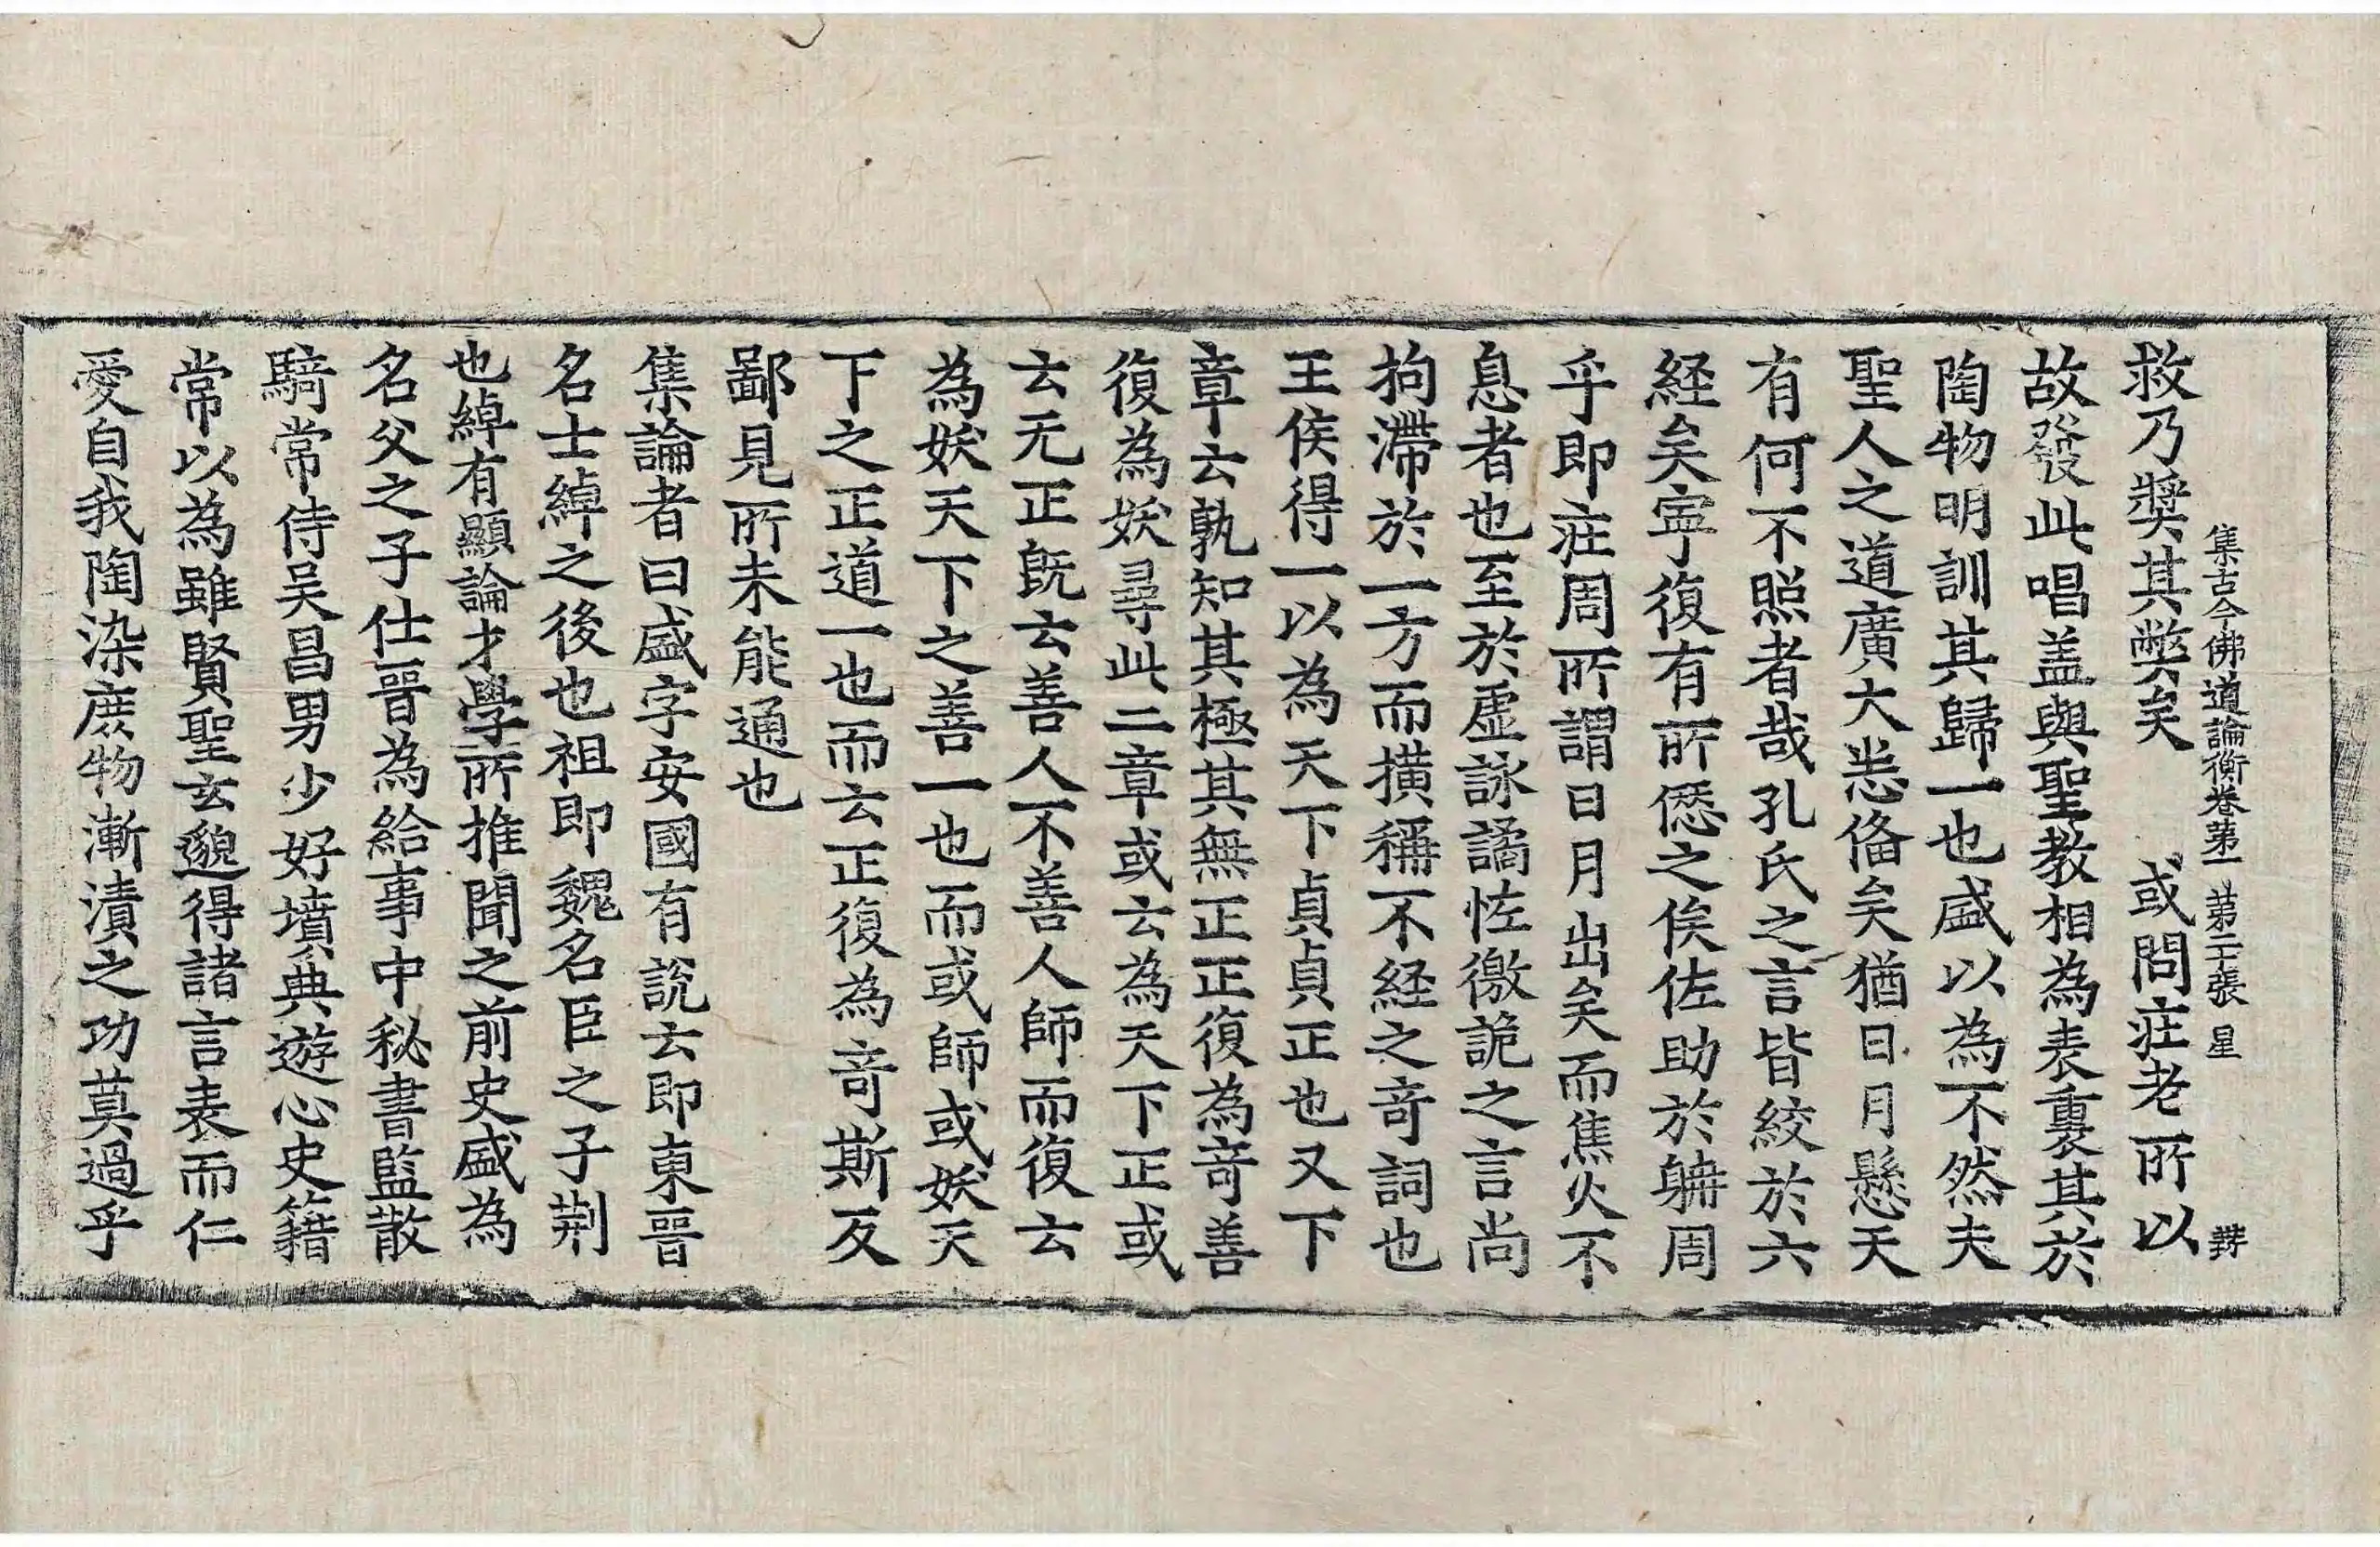 集古今佛道論衡卷第一　第二十張　星
救乃獎其弊矣　或問莊老所以
故發此唱盖與聖教相為表裏其於
陶物明訓其歸一也盛以為不然夫
聖人之道廣大悉俻矣猶日月懸天
有何不照者哉孔氏之言皆絞於六
経矣寧復有所僁之俟佐助於聃周
乎即莊周所謂日月出矣而焦火不
息者也至於虛詠譎恠徼詭之言尚
拘滯於一方而撗稱不経之竒詞也
王侯得一以為天下貞貞正也又下
章云孰知其極其無正正復為竒善
復為妖尋此二章或云為天下正或
云无正旣云善人不善人師而復云
為妖天下之善一也而或師或妖天
下之正道一也而云正復為竒斯反
鄙見所未能通也
集論者曰盛字安國有說云即東晉
名士綽之後也祖即魏名臣之子荆
也綽有顯論才學所推聞之前史盛為
名父之子仕晉為給事中秘書監散
騎常侍吴昌男少好墳典遊心史籍
常以為雖賢聖玄邈得諸言表而仁
愛自我陶染庻物漸漬之功莫過乎